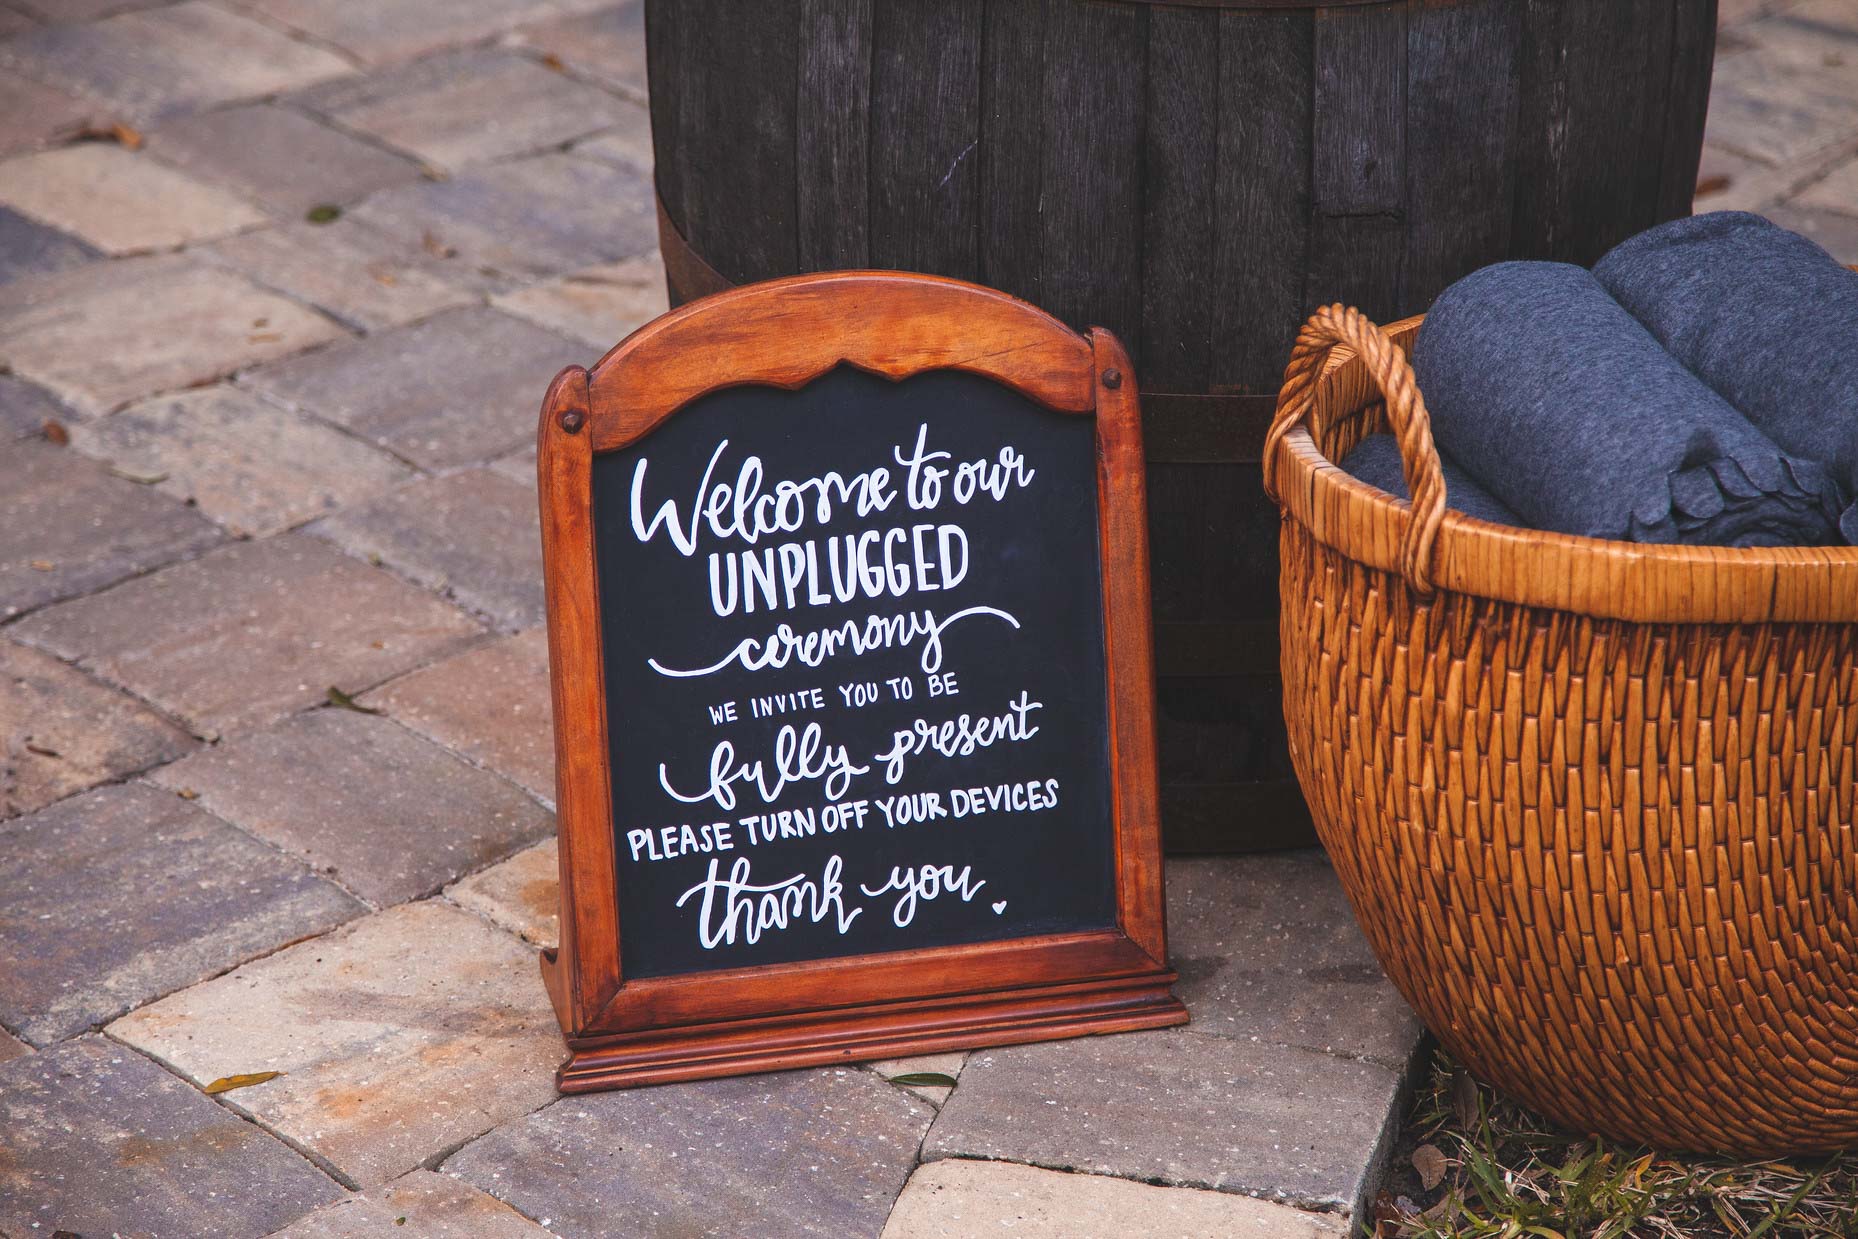 Welcome to our
UNPLUGGED
ceremony
WE INVITE YOU TO BE
fully present
PLEASE TURN OFF YOUR DEVICES
thank you